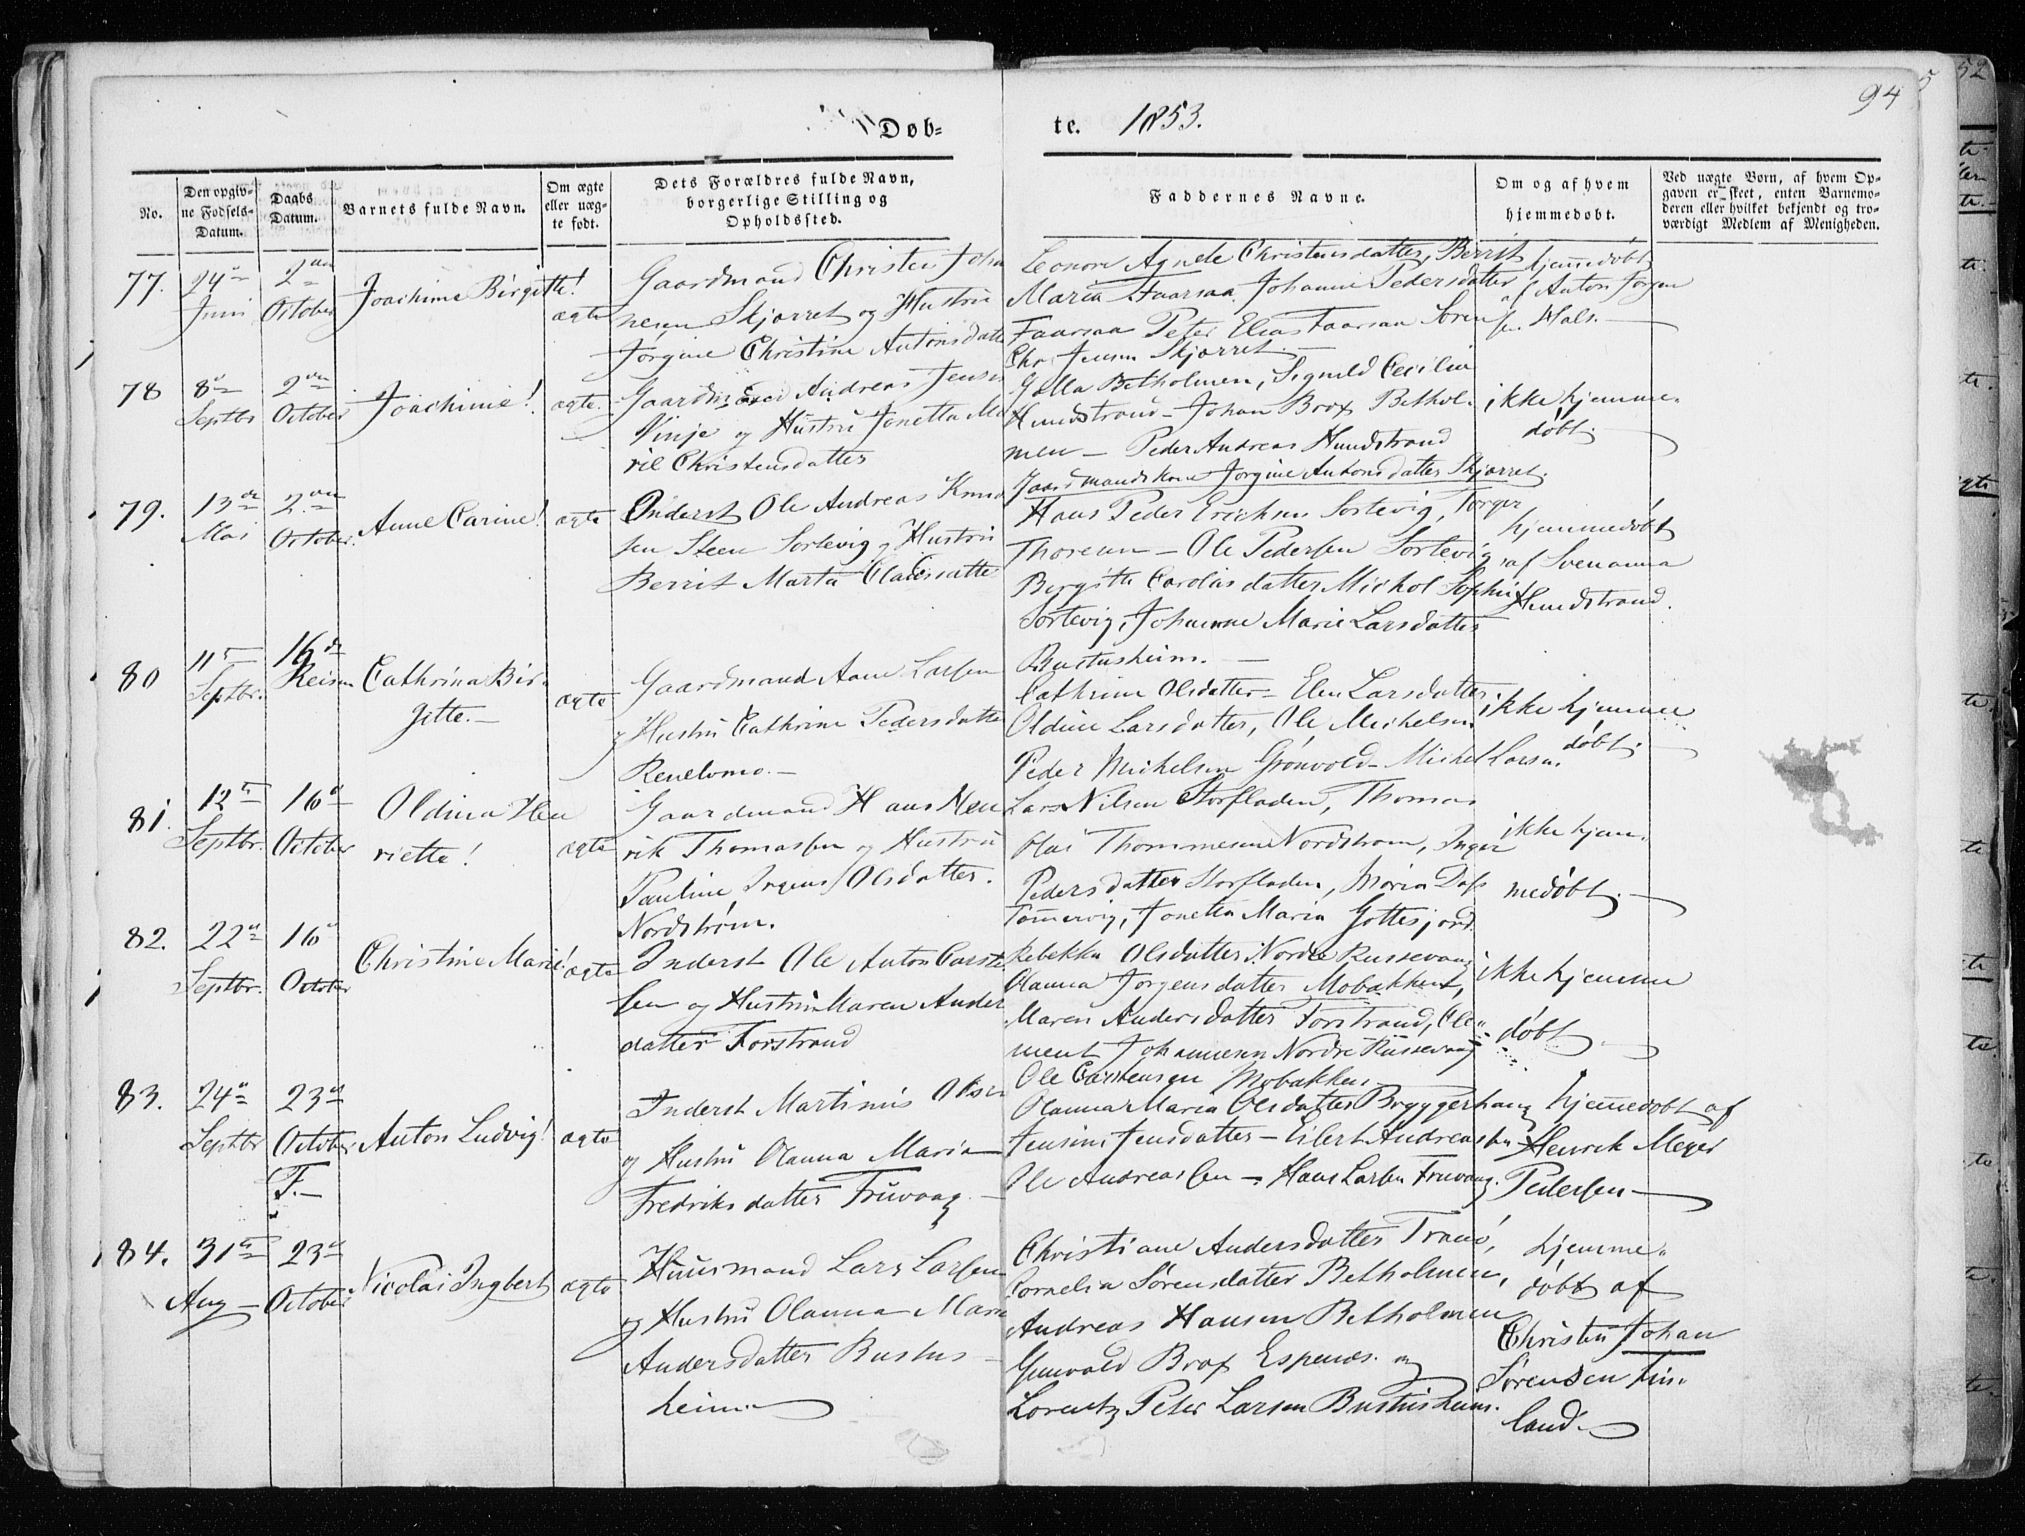 94
Døb-
te. 1853.
No.
Den opgiv-
ne Fødsels-
Datum.
Daabs
Datum.
Barnets fulde Navn.
Om ægte
eller uæg-
te født.
Dets Forældres fulde Navn,
borgerlige Stilling og
Opholdssted.
Faddernes Navne.
Om og af hvem
hjemmedøbt.
Ved uægte Børn, af hvem Op-
gaven er skeet, enten Barnemo-
deren eller hvilket bekjendt og tro-
værdigt Medlem af Menigheden.
77.
24de
Juni
2den
October
Joachime Birgitte!
ægte
Gaardmand Christen Joha
nesen Skjærret og Hustru
Jørgine Christine Antonsdatte
Leonore Agnete Christensdatter, Berrit
Maria Faarsaa Johanne Pedersdatter
Faarsaa Peter Elias Faarsaa Søren
Chr. Jensen Skjærret.
hjemmedøbt
af Anton Jørgen
Hals.
78
8de
Septbr
2den
October
Joachimie!
ægte.
Gaardmand Andreas Jense
Vinje og Hustru Jonetta Ma
rie Christensdatter
Betholmen, Signeld Cecilie
Hundstrand - Johan Brox Bethol-
men - Peder Andreas Hundstrand
Gaardmandskone Jørgine Antonsdatter Skjærret.
ikke hjemme-
døbt.
79.
13de
Mai
2den
October.
Anne Carine!
ægte
Inderst Ole Andreas Knud
sen Steen Sortevig og Hustru
Berrit Marta Clausdatte
Hans Peder Erichsen Sortevig, Torger
Thoresen - Ole Pedersen Sortevig
Bergitte Carolusdatter Michol Sophie
Sortevig, Johanne Marie Larsdatter
Bustusheim.
hjemmedøbt
af Svenanna
Hundstrand.
80
11te
Septbr.
16de
Reisen
Cathrina Bir-
gitte.
ægte
Gaardmand Aane Larsen
og Hustru Cathrine Pedersdatte
Renelvmo.
Cathrine Olsdatter - Elen Larsdatter,
Oldine Larsdatter, Ole Michelsen
Peder Michelsen Grønvold - Michel Larsen.
ikke hjemme
døbt.
81.
12te
Septbr.
16de
October
Oldina Hen
riette!
ægte
Gaardmand Hans Hen
rik Thomassen og Hustru
Pauline Irgens Olsdatter.
Nordstrøm.
Lars Nilsen Storfladen, Thomas
Olai Thommesen Nordstrøm, Inger
Pedersdatter Storfladen, Maria Dass
Tømmervig, Jonetta Maria Gottesjord
ikke hjem-
medøbt.
82.
22de
Septbr.
16de
October
Christine Marie!
ægte
Inderst Ole Anton Carste
sen og Hustru Maren Ander
datter Forstrand
Rebekka Olsdatter Nordre Russevaag
Olanna Jørgensdatter Mobakken,
Maren Andersdatter Forstrand, Cle-
ment Johannesen Nordre Russevaag
Ole Carstensen Mobakken
ikke hjemme
døbt
83.
24de
Septbr
23de
October
F.
Anton Ludvig!
ægte
Inderst Martinus Olsen
og Hustru Olanna Maria
Fredriksdatter Truvaag.
Olanna Maria Olsdatter Bryggerhaug
Jensine Jensdatter - Eilert Andreassen
Ole Andreassen - Hans Larsen Truvaag.
hjemmedøbt af
Henrik Meyer
Pedersen
84.
31te
Aug
23de
October
Nicolai Ingbert
ægte
Huusmand Lars Larsen
og Hustru Olanna Marie
Andersdatter Bustus-
heim
Christiane Andersdatter Tranø,
Cornelia Sørensdatter Betholmen,
Andreas Hansen Betholmen
Gunvald Brox Espenæs. og
Lorentz Peter Larsen Bustusheim.
hjemme-
døbt af
Christen Johan
Sørensen Fin-
land.